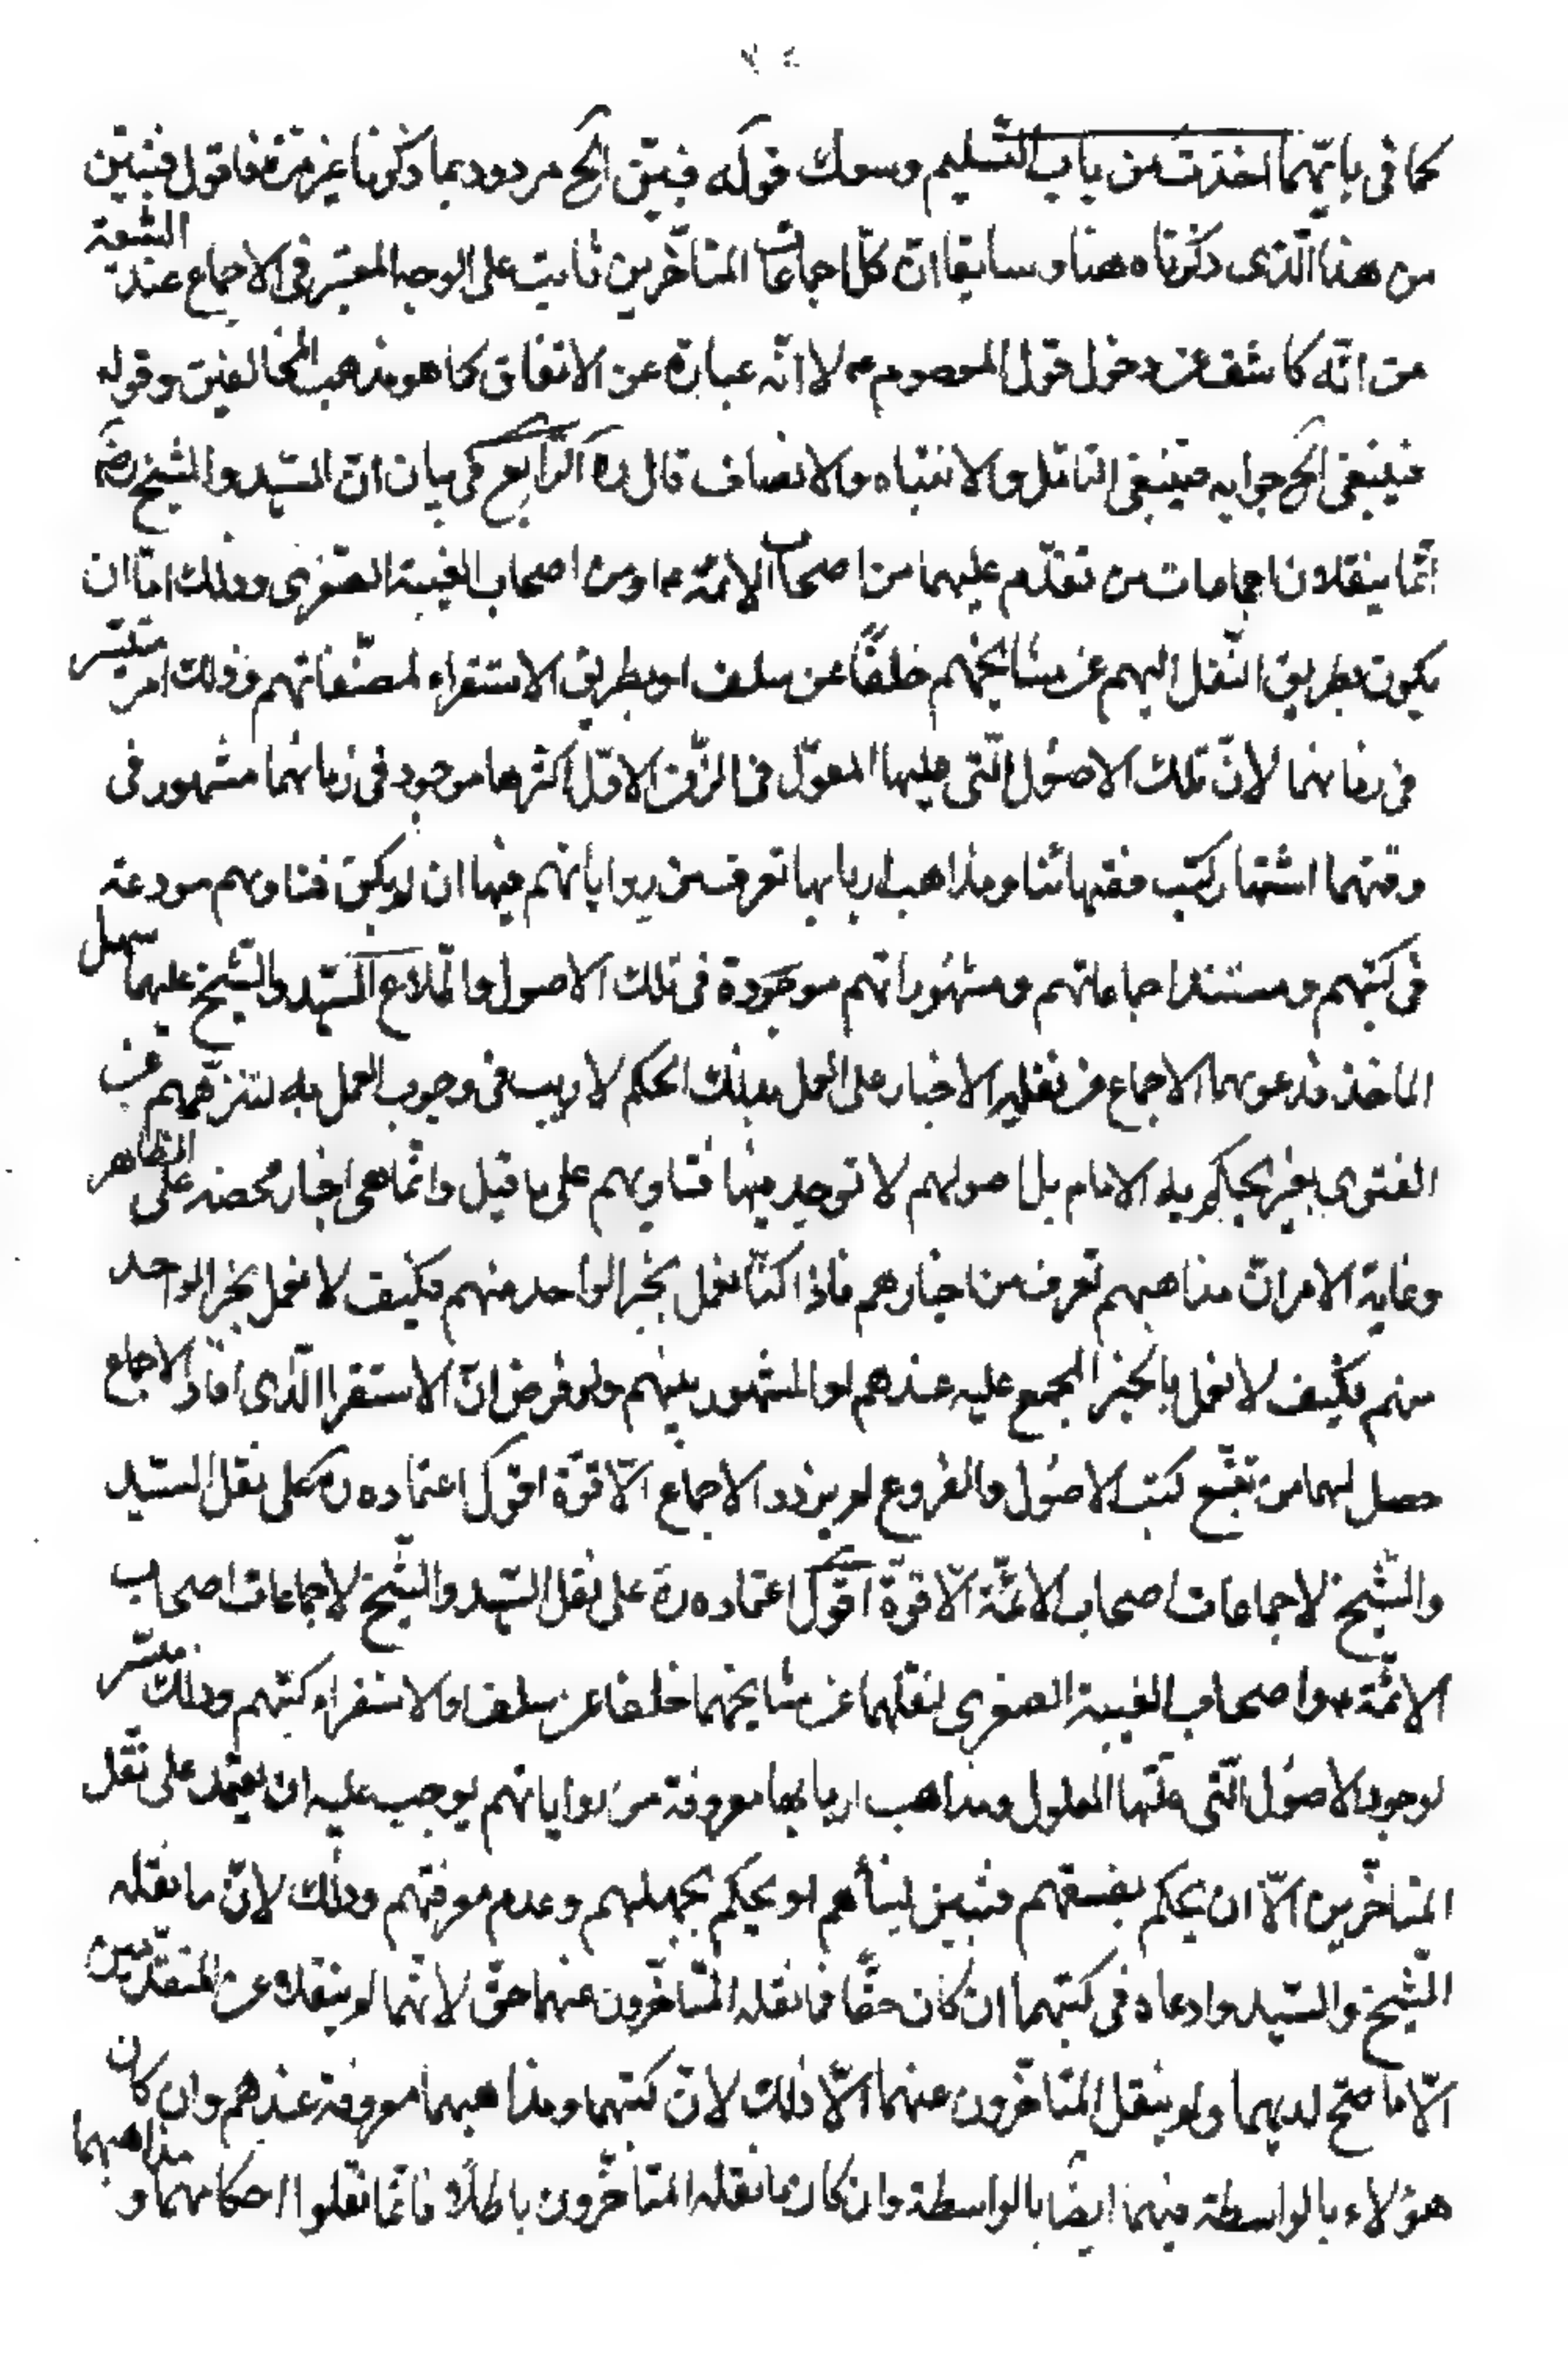 كما فى بايهما اخذت من باب التسليم وسعك قوله فبيّن الخ مردود بما ذكرنا غير مرّة فاقول فتبيّن
من هذا الّذى ذكرناه هنا وسابقا انّ كلّ اجماعات المتأخّرين ثابت على الوجه المعتبر فى الاجماع عند الشيعة
من انّه كاشف عن دخول قول المعصوم ع لا انّه عبارة عن الاتفاق كما هو مذهب المخالفين وقوله
فينبغى الخ جوابه فينبغى التامّل والانتباه والانصاف قال ره الرّابع فى بيان انّ السّيد والشيخ رض
انّما ينقلان اجماعات من تقدّم عليهما من اصحاب الائمّة ع ومن اصحاب الغيبة الصّغرى وذلك امّا ان
يكون بطريق النّقل اليهم عن مشايخهم خلفًا عن سلف او بطريق الاستقراء لمصنّفاتهم وذلك امر متيسّر
فى زمانهما لانّ تلك الاصول الّتى عليها المعوّل فى الزّمن الاوّل اكثرها موجود فى زمانهما مشهور فى
وقتهما اشتهار كتب فقهائنا ومذاهب اربابها تعرف من رواياتهم فيها ان لم يكن فتاويهم مودعة
فى كتبهم ومستند اجماعاتهم ومشهوراتهم موجودة فى تلك الاصول واطّلاع السّيد والشّيخ عليها سهل
الماخذ فدعويهما الاجماع من نقله الاخبار على العمل بذلك الحكم لا ريب فى وجوب العمل به لتنزّههم عن
الفتوى بغير ما يحكم به الامام بل اصولهم لا توجد فيها فتاويهم على ما قيل وانّما هى اخبار محضه على الظاهر
وغاية الامر انّ مذاهبهم تعرف من اخبارهم فاذا كنّا نعمل بخبر الواحد منهم فكيف لا نعمل بخبر الواحد
منهم فكيف لا نعمل بالخبر المجمع عليه عندهم او المشهور بينهم ولو فرض انّ الاستقرا الّذى افاد الاجماع
حصل لهما من تتبّع كتب الاصول والفروع لم يزدد الاجماع الّا قوّة اقول اعتماده ره على نقل السّيد
والشّيخ لاجماعات اصحاب الائمّة الّا قوّة اقول اعتماده ره على نقل السّيد والشّيخ لاجماعات اصحاب
الائمّة ع واصحاب الغيبة الصغرى لنقلهما عن مشايخهما خلفا عن سلف او لاستقراء كتبهم وذلك متيسّر
لوجود الاصول الّتى عليها المعلول ومذاهب اربابها معروفة من رواياتهم يوجب عليه ان يعتمد على نقل
المتاخّرين الّا ان يحكم بفسقهم فتبيّن لنبأهم او يحكم بجهلهم وعدم معرفتهم وذلك لانّ ما نقله
الشّيخ والسّيد وادعاه فى كتبهما ان كان حقّا فما نقله المتاخّرون عنهما حق لانّهما لم ينقلا عن المتقدّمين
الّا ما صحّ لديهما ولم ينقل المتاخّرون عنهما الّا ذلك لانّ كتبهما ومذاهبهما معروفة عندهم وان كان
هؤلاء بالواسطة فهما ايضا بالواسطة وان كان ما نقله المتاخّرون باطلًا فانّما نقلوا احكامهما و مذاهبهما